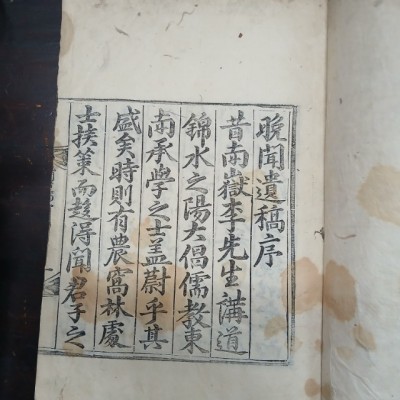 晚聞遺稿序
昔南嶽李先生講道
錦水之陽大倡儒教東
南承學之士盖蔚乎其
盛矣時則有農窩林處
士挾策而趍得聞君子之